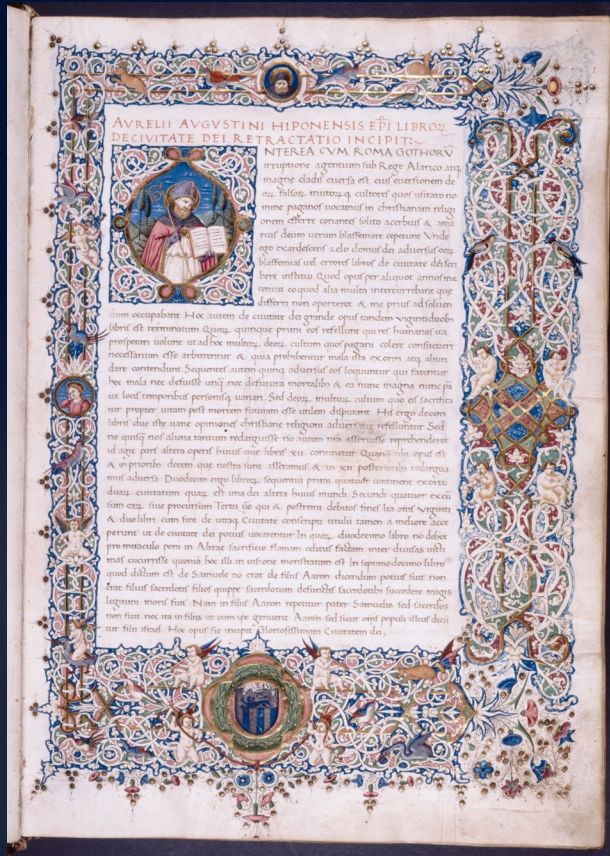 AVRELII AVGVSTINI HIPONENSIS EPI LIBROꝜ
DE CIVITATE DEI RETRACTATIO INCIPIT:
NTEREA CVM ROMA GOTHORŪ
irruptione agentium sub Rege Alarico atq
magne cladis euersa est eius euersionem de
oꝝ falsoꝝ multoꝝq cultores quos usitato no
mine paganos uocamus in christianam religi
onem efferre conantes solito acerbius & ama
rius deum uerum blasfemare ceperunt Vnde
ego exardescens zelo domus dei aduersus eoꝝ
blasfemias uel errores libros de ciuitate dei scri
bere institui Quod opus per aliquot annos me
tenuit eo quod alia multa intercurrebant que
differri non oporteret & me prius ad soluen
dum occupabant Hoc autem de ciuitate dei grande opus tandem viginti duob
libris est terminatum Quoꝝ quinque primi eos refellunt qui res humanas ita
prosperari uolunt ut ad hoc multoꝝ deoꝝ cultum quos pagani colere consueuerūt
necessarium esse arbitrentur & quia prohibentur mala ista exoriri atq abun
dare contendunt Sequentes autem quinq aduersus eos loquuntur qui fatentur
hec mala nec defuisse unq nec defutura mortalib & ea nunc magna nunc pa
ua locis temporibus personisq uariari Sed deoꝝ multoꝝ cultum quo eis sacrifica
tur propter uitam post mortem futuram esse utilem disputant His ergo decem
libris due iste uane opiniones christiane religioni aduersarie refelluntur Sed
ne quisq nos aliena tantum redarguisse no autem nra asseruisse reprehenderet
id agit pars altera operis huius que libris xii continetur Quanq ubi opus est
& in priorib decem que nostra sunt asseramus & in xii posterioribus redargua
mus aduersa Duodecim ergo libroꝝ sequentiū primi quatuor continent exortū
duaꝝ ciuitatum quaꝝ est una dei altera huius mundi Secundi quatuor excur
sum eaꝝ siue procursum Tertii uo qui & postremi debitos fines Ita oms viginti
& duo libri cum sint de utraq Ciuitate conscripti titulū tamen a meliore acce
perunt ut de ciuitate dei potius uocarentur In quoꝝ duodecimo libro no debet
pro miraculo poni in Abrae sacrificio flamam celitus factam inter diuisas uicti
mas cucurrisse quoniā hoc illi in uisione monstratum est In septimo decimo libro
quod dictum est de Samuele no erat de filiis Aaron dicendum potius fuit non
erat filius sacerdotis filios quippe sacerdotum defunctis sacerdotib succedere magis
legitimi moris fuit Nam in filiis Aaron reperitur pater Samuelis sed sacerdos
non fuit nec ita in filiis ut eum ipse genuerit Aaron sed sicut oms populi illius dicū
tur filii israel. Hoc opus sic incipit Gloriosissimam Ciuitatem dei.